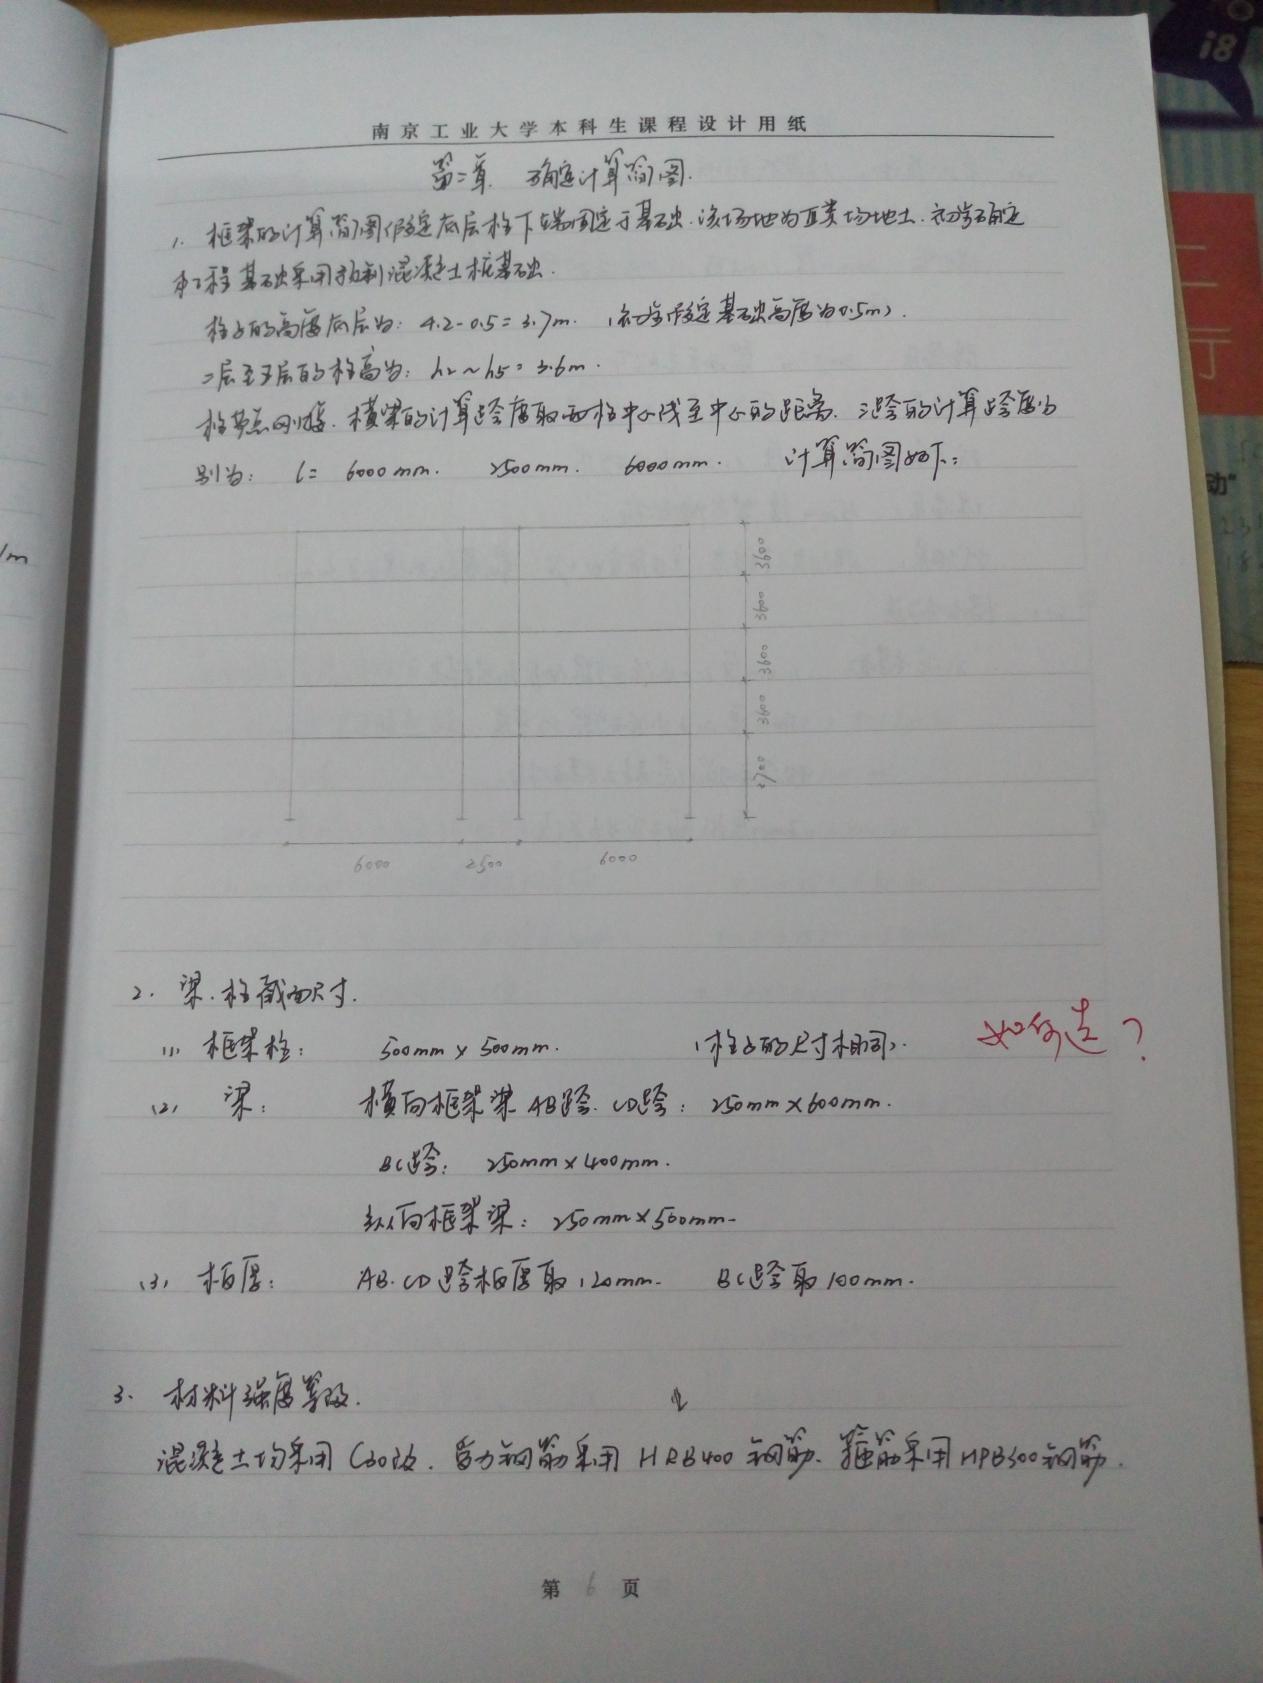 i8
南京工业大学本科生课程设计用纸
第二章 确定计算简图.
1. 框架的计算简图假定底层柱下端固定于基础.该场地为Ⅱ类场地土.初步确定
本工程基础采用预制混凝土桩基础.
柱子的高度底层为: 4.2-0.5=3.7m. (初步假定基础高度为0.5m).
二层至五层的柱高为: h2~h5=3.6m.
柱节点刚接.横梁的计算跨度取两柱中心线至中心的距离.三跨的计算跨度分
别为: l= 6000mm. 2500mm. 6000mm. 计算简图如下:
/m
动"
3600
3600
3600
3600
3700
6000 2500 6000
2. 梁.柱截面尺寸.
(1) 框架柱: 500mm×500mm. (柱子的尺寸相同). 如何选?
(2) 梁: 横向框架梁 AB跨.CD跨: 250mm×600mm.
BC跨: 250mm×400mm.
纵向框架梁: 250mm×500mm.
(3) 板厚: AB.CD跨板厚取120mm. BC跨取100mm.
3. 材料强度等级.
混凝土均采用C30级.受力钢筋采用HRB400钢筋.箍筋采用HPB300钢筋.
第 6 页